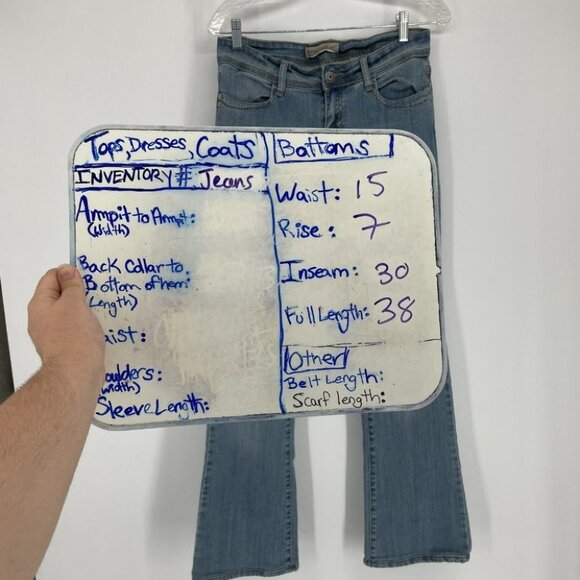 Tops, Dresses, Coats
INVENTORY # Jeans
Armpit to Armpit:
(Width)
Back Collar to
Bottom of hem:
(Length)
aist:
oulders:
width)
Sleeve Length:
Bottoms
Waist: 15
Rise: 7
Inseam: 30
Full Length: 38
Other
Belt Length:
Scarf length: